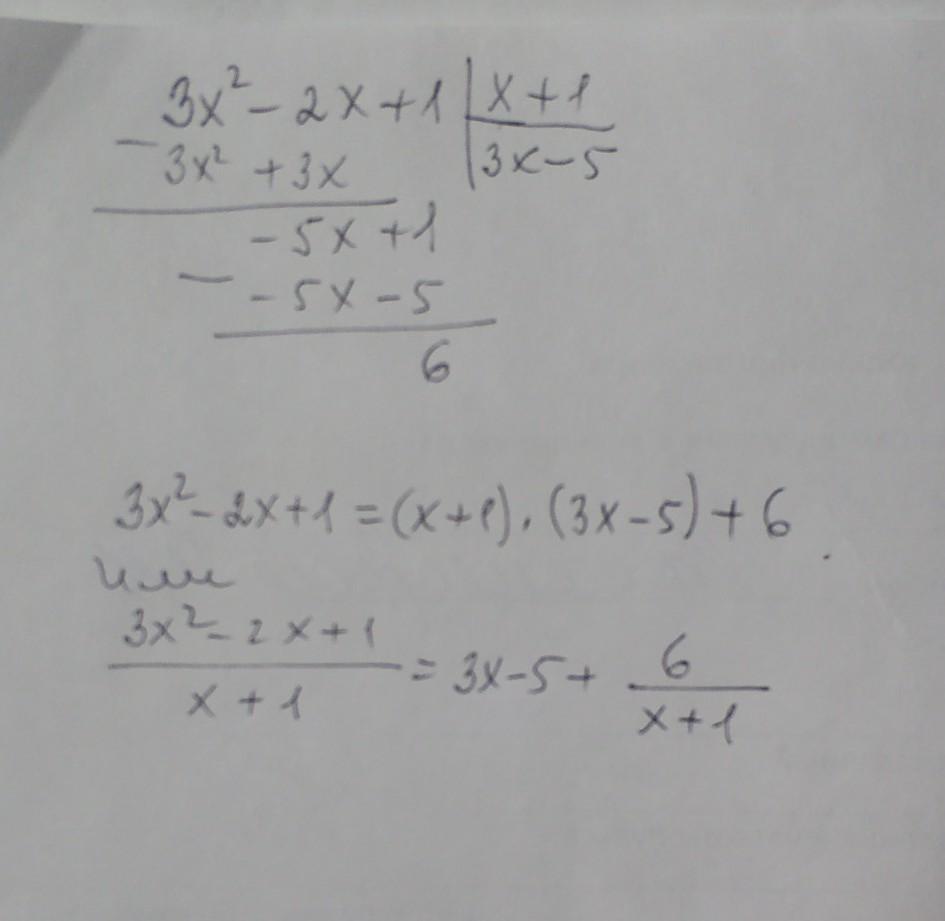 3x² - 2x + 1 | x + 1
- 3x² + 3x | 3x - 5
- 5x + 1
- - 5x - 5
6
3x² - 2x + 1 = (x + 1) · (3x - 5) + 6 .
или
3x² - 2x + 1
x + 1
= 3x - 5 +
6
x + 1